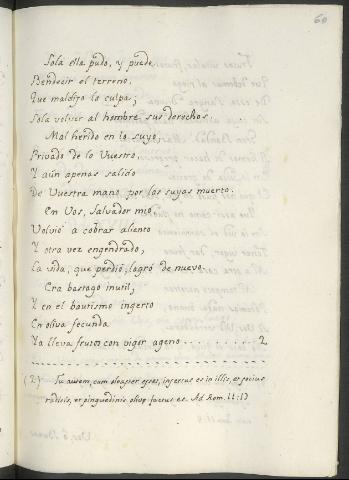 60
Sola ella pudo, y puede
Bendecir el terreno,
Que maldijo la culpa;
Sola volver al hombre sus derechos.
Mal herido en lo suyo,
Privado de lo Vuestro,
Y aún apenas salido
De Vuestra mano por las suyas muerto.
En Vos, Salvador mio,
Volvió a cobrar aliento
Y otra vez engendrado,
La vida, que perdió, logró de nuevo.
Era bastago inutil;
Y en el bautismo ingerto
En oliva fecunda
Ya lleva frutos con vigor ageno.......... 2
(2) Tu autem, cum oleaster esses, insertus es in illis, et socius
radicis, et pinguedinis olivæ factus es. Ad Rom. 11:17